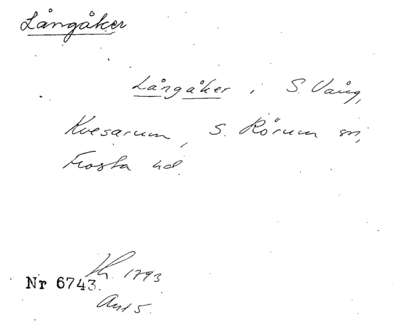 Långåker
Långåker i S. Vång,
Kvesarum, S. Rörum sn,
Frosta hd.
Nr 6743. Kh. 1793
Akt 5.